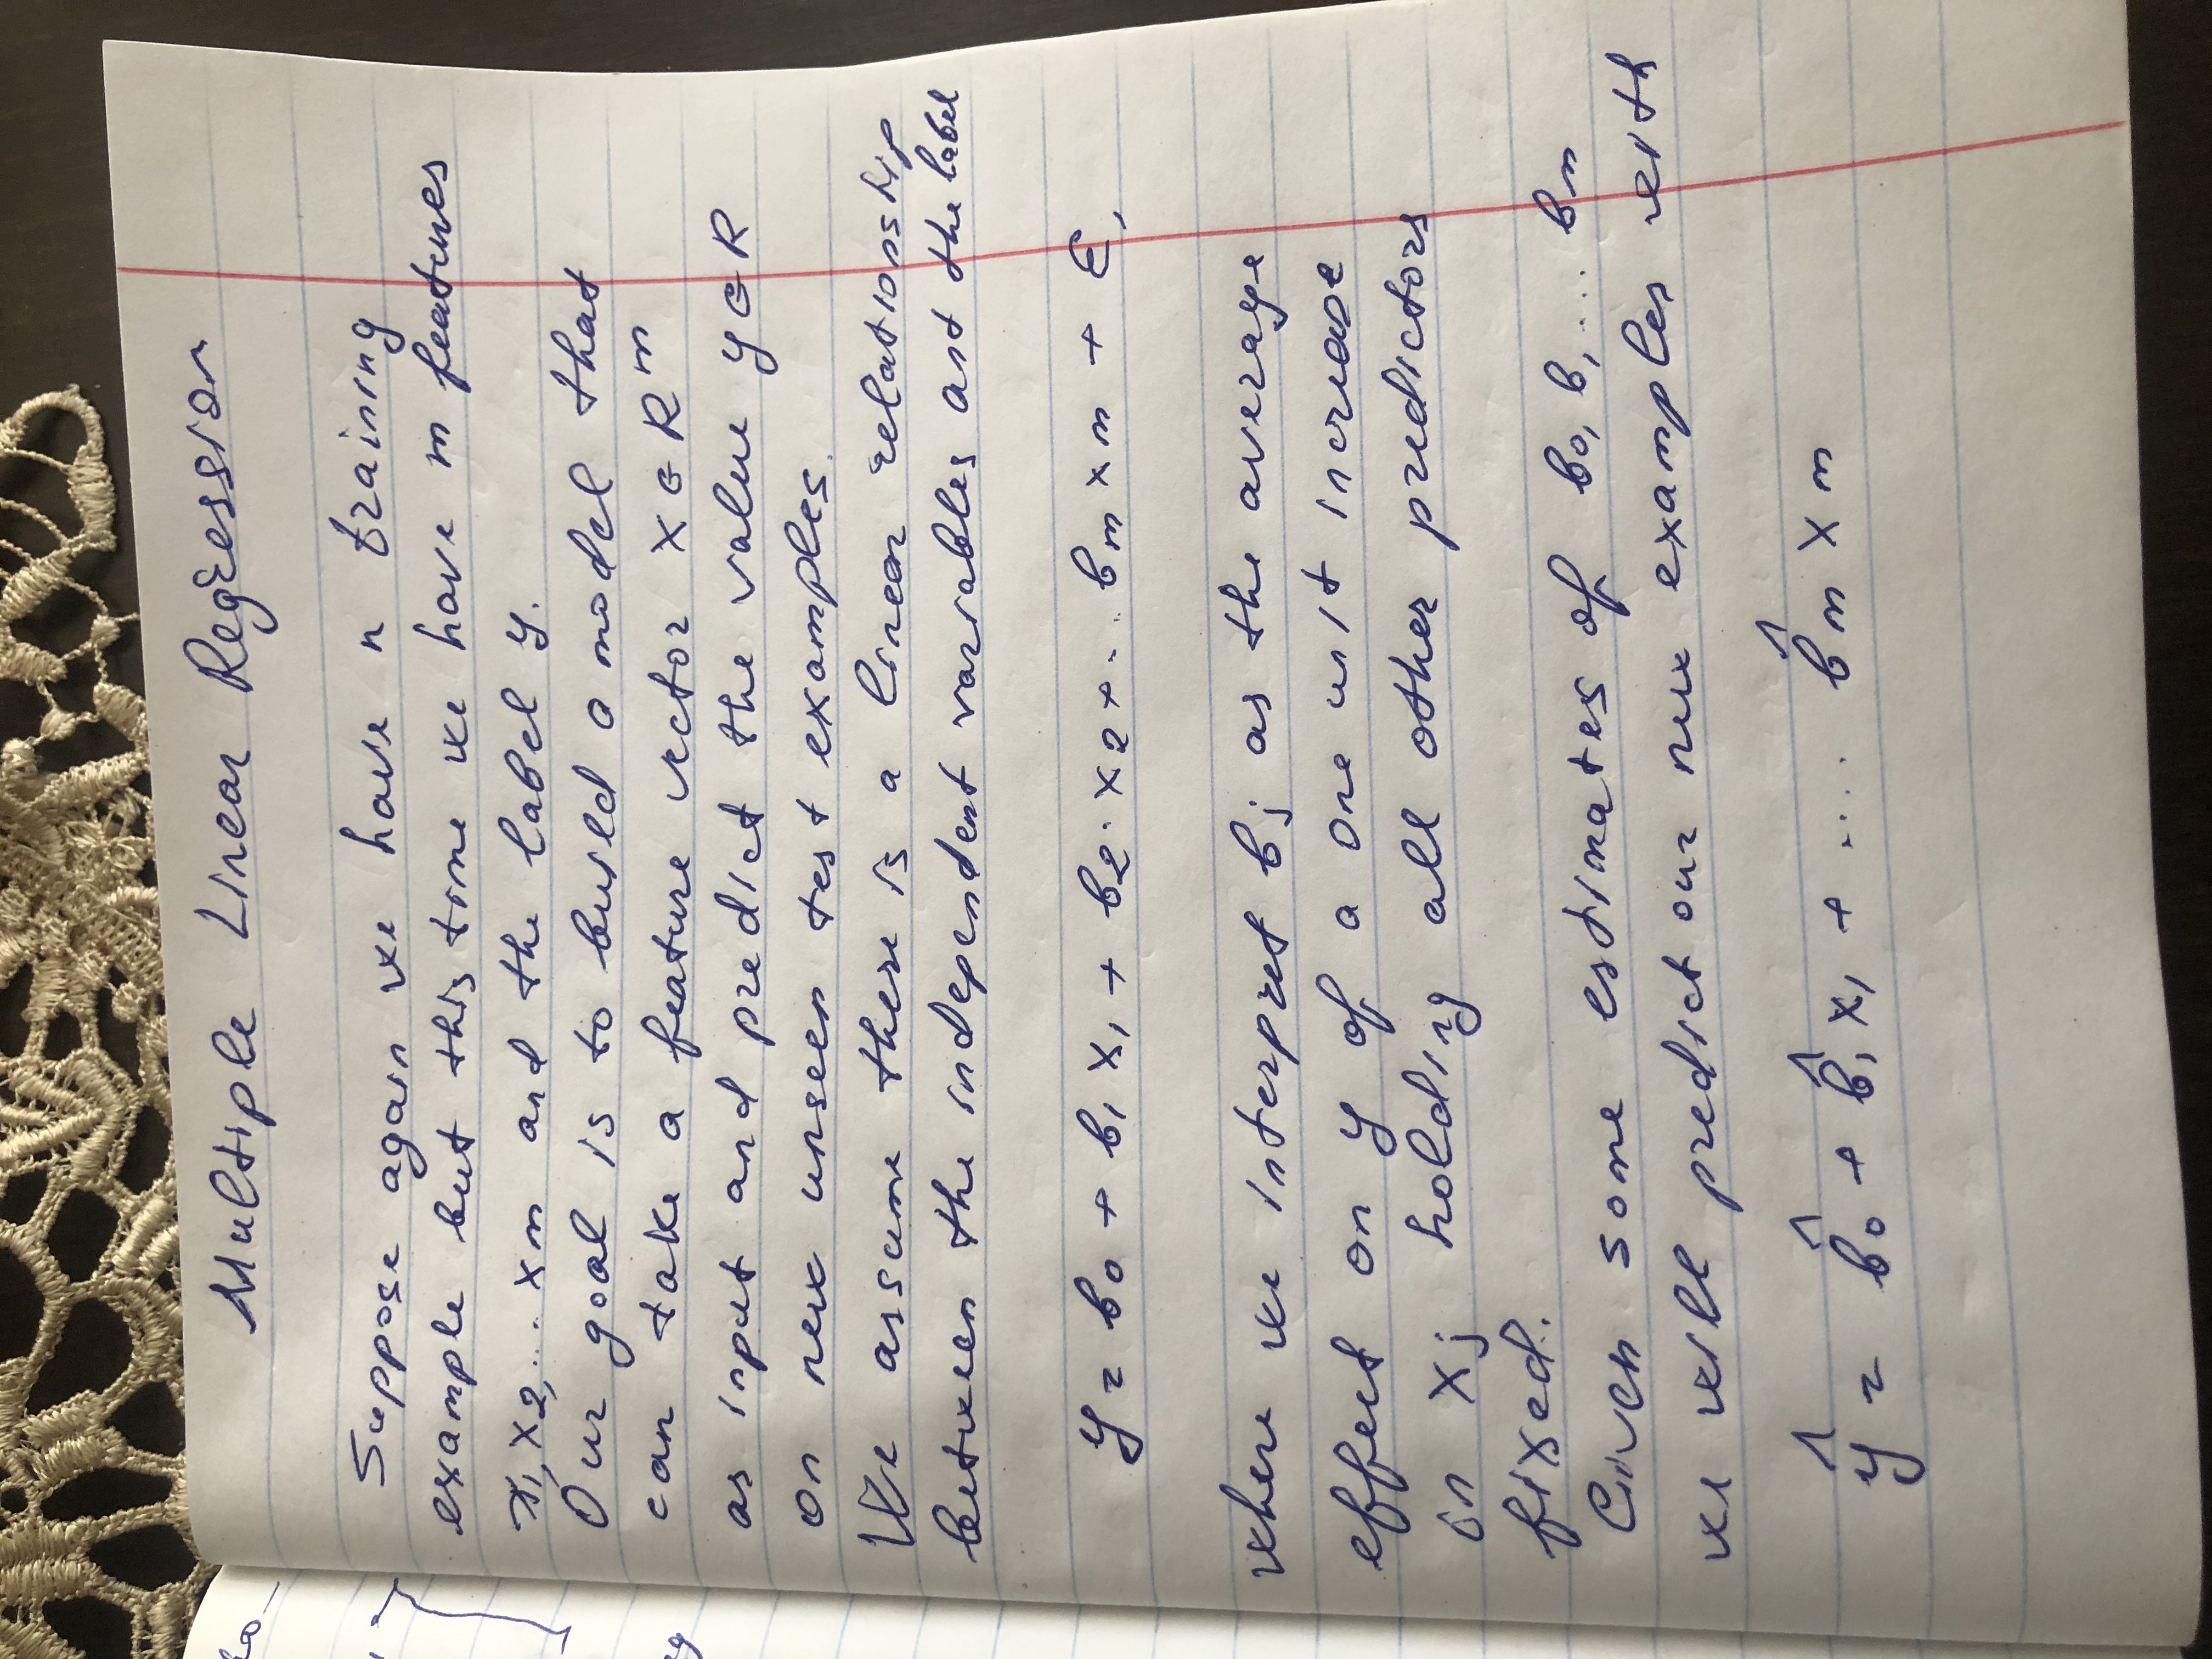 Multiple Linear Regression
Suppose again we have n training
example but this time we have m features
x1, x2, ... xm and the label y.
Our goal is to build a model that
can take a feature vector x ∈ R^m
as input and predict the value y ∈ R
on new unseen test examples.
We assume there is a linear relationship
between the independent variables and the label
y = b0 + b1 x1 + b2 · x2 + ... bm xm + ε,
where we interpret bj as the average
effect on y of a one unit increase
in xj holding all other predictors
fixed.
Given some estimates of b0, b1, ... bm
we will predict our new examples with
ŷ = b̂0 + b̂1 x1 + .... b̂m xm